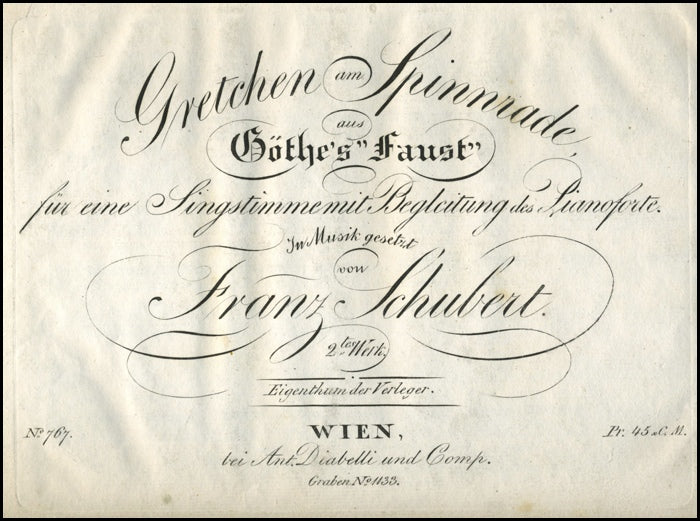 Gretchen am Spinnrade,
aus
Göthe's "Faust"
für eine Singstimme mit Begleitung des Pianoforte.
In Musik gesetzt
von
Franz Schubert.
2tes Werk.
Eigenthum der Verleger.
WIEN,
No. 767.
Pr. 45 x C. M.
bei Ant. Diabelli und Comp.
Graben No. 1133.